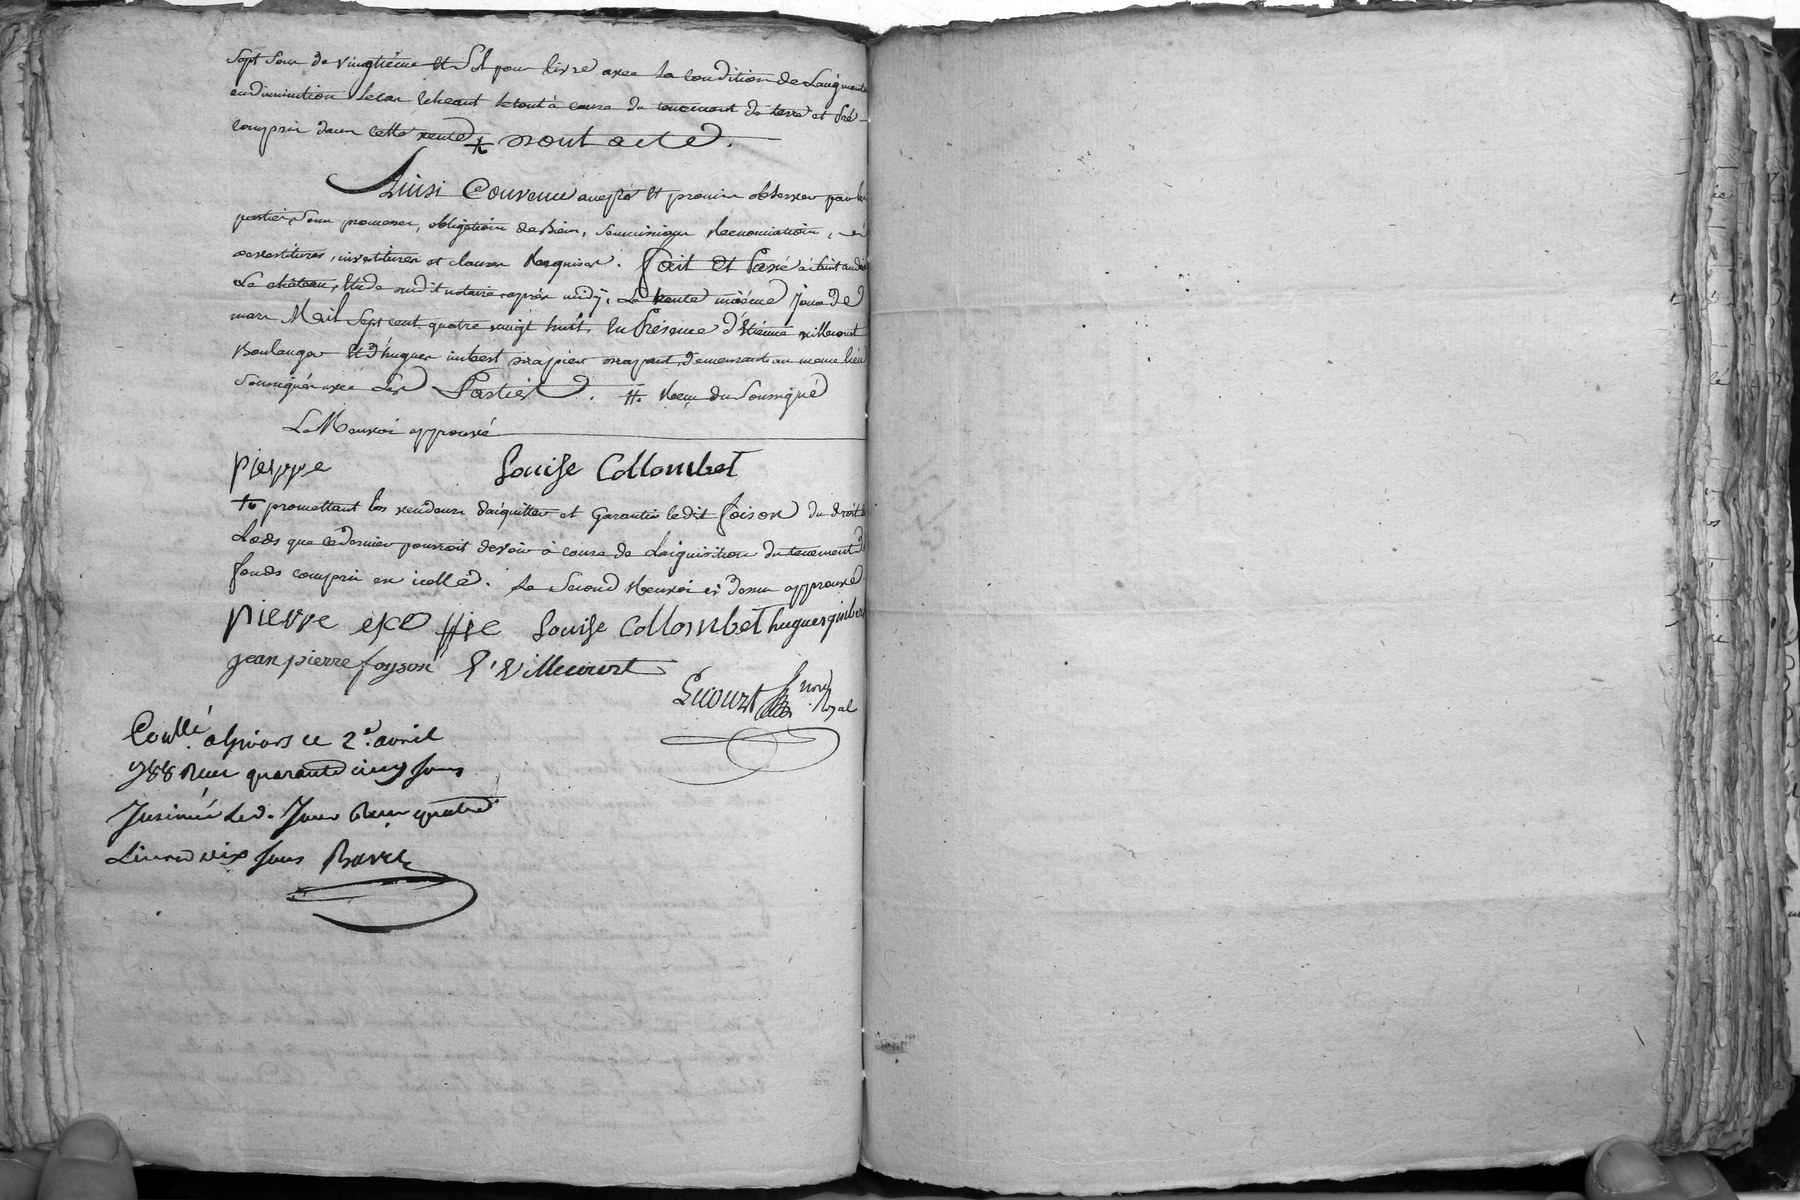 sept sous de vingtiéme Et Sol pour livre avec la condition de Laugmenta
ou diminution le cas Echeant le tout à cause du tenement de terre et Pré
compris dans cette vente + Dont acte.
Ainsi Convenu accepté Et promis observer par les
parties, sous promesses, obligation de Biens, soumissions, Renonciation,
devestitures, investitures et clauses Requises. Fait Et Passé à Saint andré
Le château, Etude dudit notaire, après midy, Le trente unième Jour de
mars Mail Sept cent quatre vingt huit, En Présence d'Etienne villecourt
Boulanger Et d'hugues imbert demeurants au meme lieu
soussignés avec Les Parties. #. Reçu du soussigné
Le Renvoi approuvé
pierre Louise Collombet
+ promettant les vendeurs d'aiquitter et Garantir ledit Foison du droit de
Lods que ce dernier pourroit devoir à cause de Laiquisition du tenement de
fonds compris en icelle. Le Second Renvoi ci dessus approuvé
pierre Louise Collombet hugues gimbert
jean pierre foyson E. Villecourt
Licourt Nore Royal
Conllé a le 2e. avril
1788 Reçu quarante cinq sous
Insinué led. Jour Reçu quatre
Livres dix sous